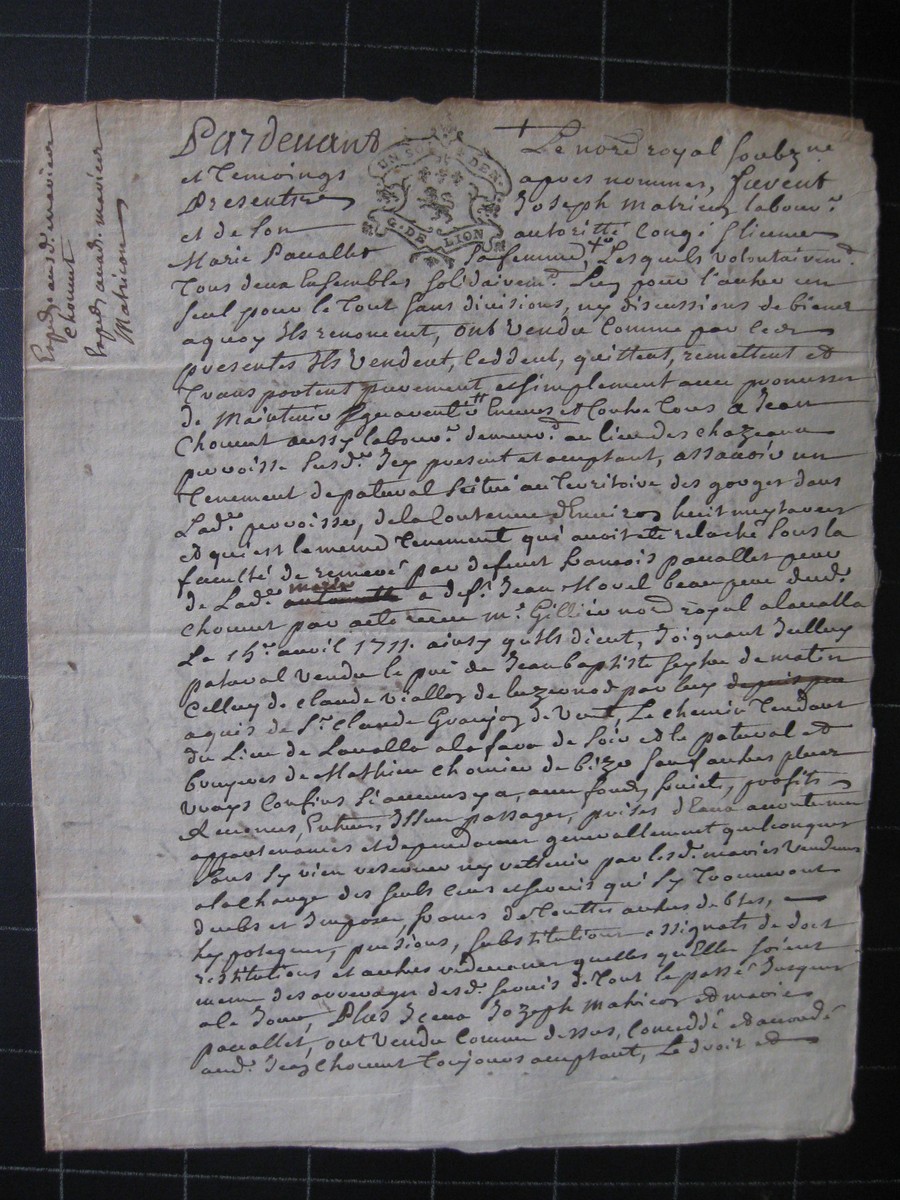 Expédié aud. mavicon
Chomat
Expédié aud. mavicon
Matricon
Pardevant Le nore royal soubzne
UN SOL
G. DE LION
et Temoings apres nommes, furent
Presents Joseph Matricon labour.r
et de son autoritté Congé
Marie Pauallet sa femme, Lesquels volontairemt.
Tous deux Ensembles solidairemt. L'un pour l'autre un
seul pour le Tout sans divisions, ny discussions de biens
a quoy Ils renoncent, ont vendu Comme par Ces
presentes Ils vendent, Ceddent, quittent, remettent et
Transportent purement et simplement avec promesses
de Maintenir Envers et Contre Tous a Jean
Chomat aussy labour.r demeur.t au lieu des chazeaux
parroisse susd.e Icy present et acceptant, assavoir un
Tenement de patural scitué au Territoire des gouges dans
Lad.e parroisse, de la Contenue d'Environ huit
et qui est le meme Tenement qui avoit eté relaché sous la
faculté de remeré par defunt francois pauallet pere
de Lad.e marie a deft. Jean Morel beau pere dud.
Chomat par acte recu me. Gillier nore royal alavalla
Le 15.e avril 1711. ainsy qu'Ils dient, Joignant Icelluy
patural vendu le pré de Jean baptiste de matin
Celluy de claude viallon de luzernod par luy depuis peu
aquis de Sr. Claude Granjon de vent, Le chemin Tendant
du Lieu de Lavalla a la fara de soir et le patural et
bruyeres de Mathieu Chomier de bize sauf autres plus
vrays Confins si aucuns y a, avec fonds, profits
Entrées, Issues passages, prises d'Eaux
appartenances et dependances generallement quelconques
sans sy rien reserver ny rettenir par lesd. maries vendeurs
a la charge des seuls Cens et servis qui sy Trouveront
deubs et Imposés, francs de Touttes autres debtes,
hypoteques, pensions, substitutions assignats de dot
restitutions et autres redevances quelles qu'Elles soient
meme des arrerages desd. servis de Tout le passé Jusques
a Ce Jour, Plus Iceux Jozeph Matricon et marie
pauallet, ont vendu Comme dessus, Conceddé et accordé
aud. Jean Chomat Toujours acceptant, Le droit et